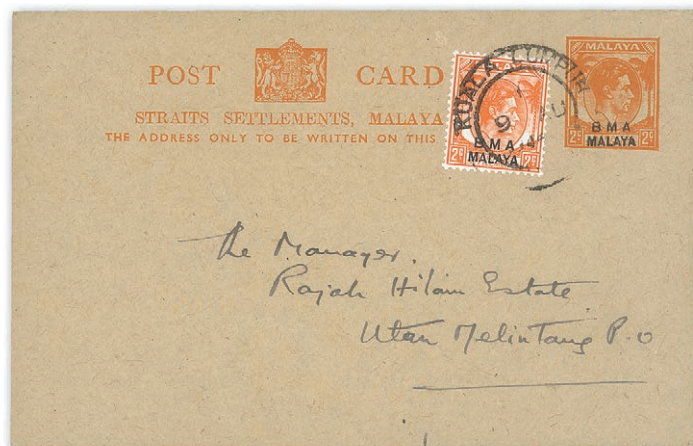 POST CARD
STRAITS SETTLEMENTS, MALAYA
THE ADDRESS ONLY TO BE WRITTEN ON THIS
MALAYA
2c 2c
BMA
MALAYA
KUALA LUMPUR
9
2c
BMA
MALAYA
The Manager,
Rajah Hilam Estate
Utan Melintang P.O